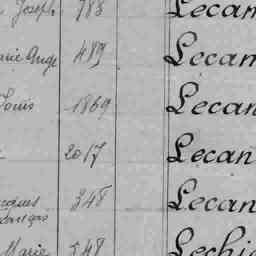 Joseph 783 Lecan
Marie Ange 489 Lecan
Louis 1869 Lecan
2017 Lecan
Jacques 348 Lecan
Marie 548 Lechi